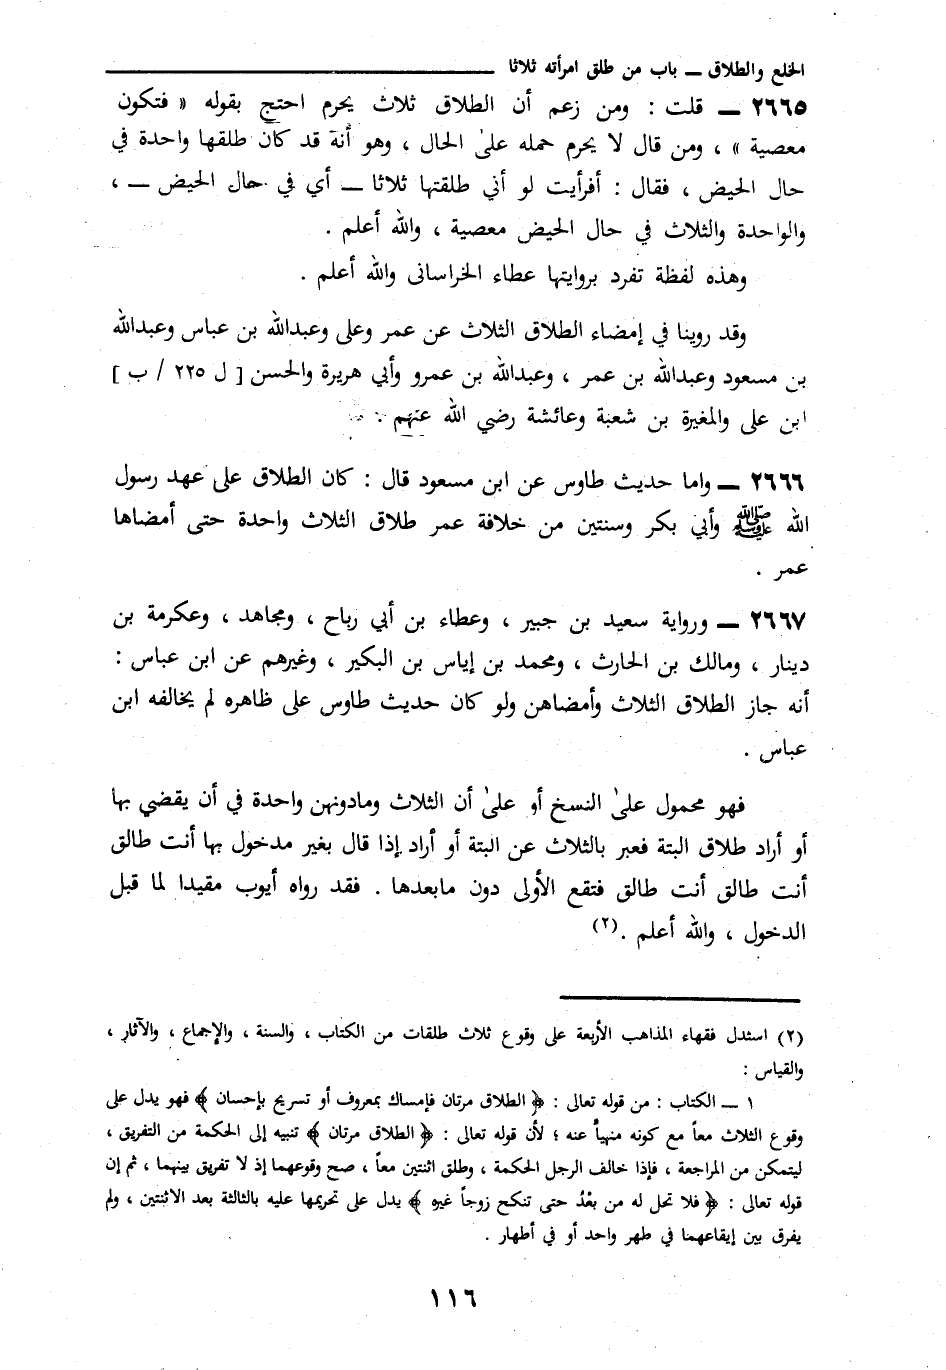 الخلع والطلاق ــ باب من طلق امرأته ثلاثا
٢٦٦٥ ــ قلت : ومن زعم أن الطلاق ثلاث يحرم احتج بقوله « فتكون
معصية » ، ومن قال لا يحرم حمله علىٰ الحال ، وهو أنة قد كان طلقها واحدة في
حال الحيض ، فقال : أفرأيت لو أني طلقتها ثلاثا ــ أي في حال الحيض ــ ،
والواحدة والثلاث في حال الحيض معصية ، والله أعلم .
وهذه لفظة تفرد بروايتها عطاء الخراسانى والله أعلم .
وقد روينا في إمضاء الطلاق الثلاث عن عمر وعلى وعبدالله بن عباس وعبدالله
بن مسعود وعبدالله بن عمر ، وعبدالله بن عمرو وأبي هريرة والحسن [ ل ٢٢٥ / ب ]
ابن على والمغيرة بن شعبة وعائشة رضي الله عنهم .
٢٦٦٦ ــ واما حديث طاوس عن ابن مسعود قال : كان الطلاق على عهد رسول
الله ﷺ وأبي بكر وسنتين من خلافة عمر طلاق الثلاث واحدة حتى أمضاها
عمر .
٢٦٦٧ ــ ورواية سعيد بن جبير ، وعطاء بن أبي رباح ، ومجاهد ، وعكرمة بن
دينار ، ومالك بن الحارث ، ومحمد بن إياس بن البكير ، وغيرهم عن ابن عباس :
أنه جاز الطلاق الثلاث وأمضاهن ولو كان حديث طاوس على ظاهره لم يخالفه ابن
عباس .
فهو محمول علىٰ النسخ أو علىٰ أن الثلاث ومادونهن واحدة في أن يقضي بها
أو أراد طلاق البتة فعبر بالثلاث عن البتة أو أراد إذا قال بغير مدخول بها أنت طالق
أنت طالق أنت طالق فتقع الأولى دون مابعدها . فقد رواه أيوب مقيدا لما قبل
الدخول ، والله أعلم .(٢)
(٢) استدل فقهاء المذاهب الأربعة على وقوع ثلاث طلقات من الكتاب ، والسنة ، والإجماع ، والآثار ،
والقياس :
١ ــ الكتاب : من قوله تعالى : ﴿ الطلاق مرتان فإمساك بمعروف أو تسريح بإحسان ﴾ فهو يدل على
وقوع الثلاث معاً مع كونه منهياً عنه ؛ لأن قوله تعالى : ﴿ الطلاق مرتان ﴾ تنبيه إلى الحكمة من التفريق ،
ليتمكن من المراجعة ، فإذا خالف الرجل الحكمة ، وطلق اثنتين معاً ، صح وقوعهما إذ لا تفريق بينهما ، ثم إن
قوله تعالى : ﴿ فلا تحل له من بعْدُ حتى تنكح زوجاً غيره ﴾ يدل على تحريمها عليه بالثالثة بعد الاثنتين ، ولم
يفرق بين إيقاعهما في طهر واحد أو في أطهار .
١١٦